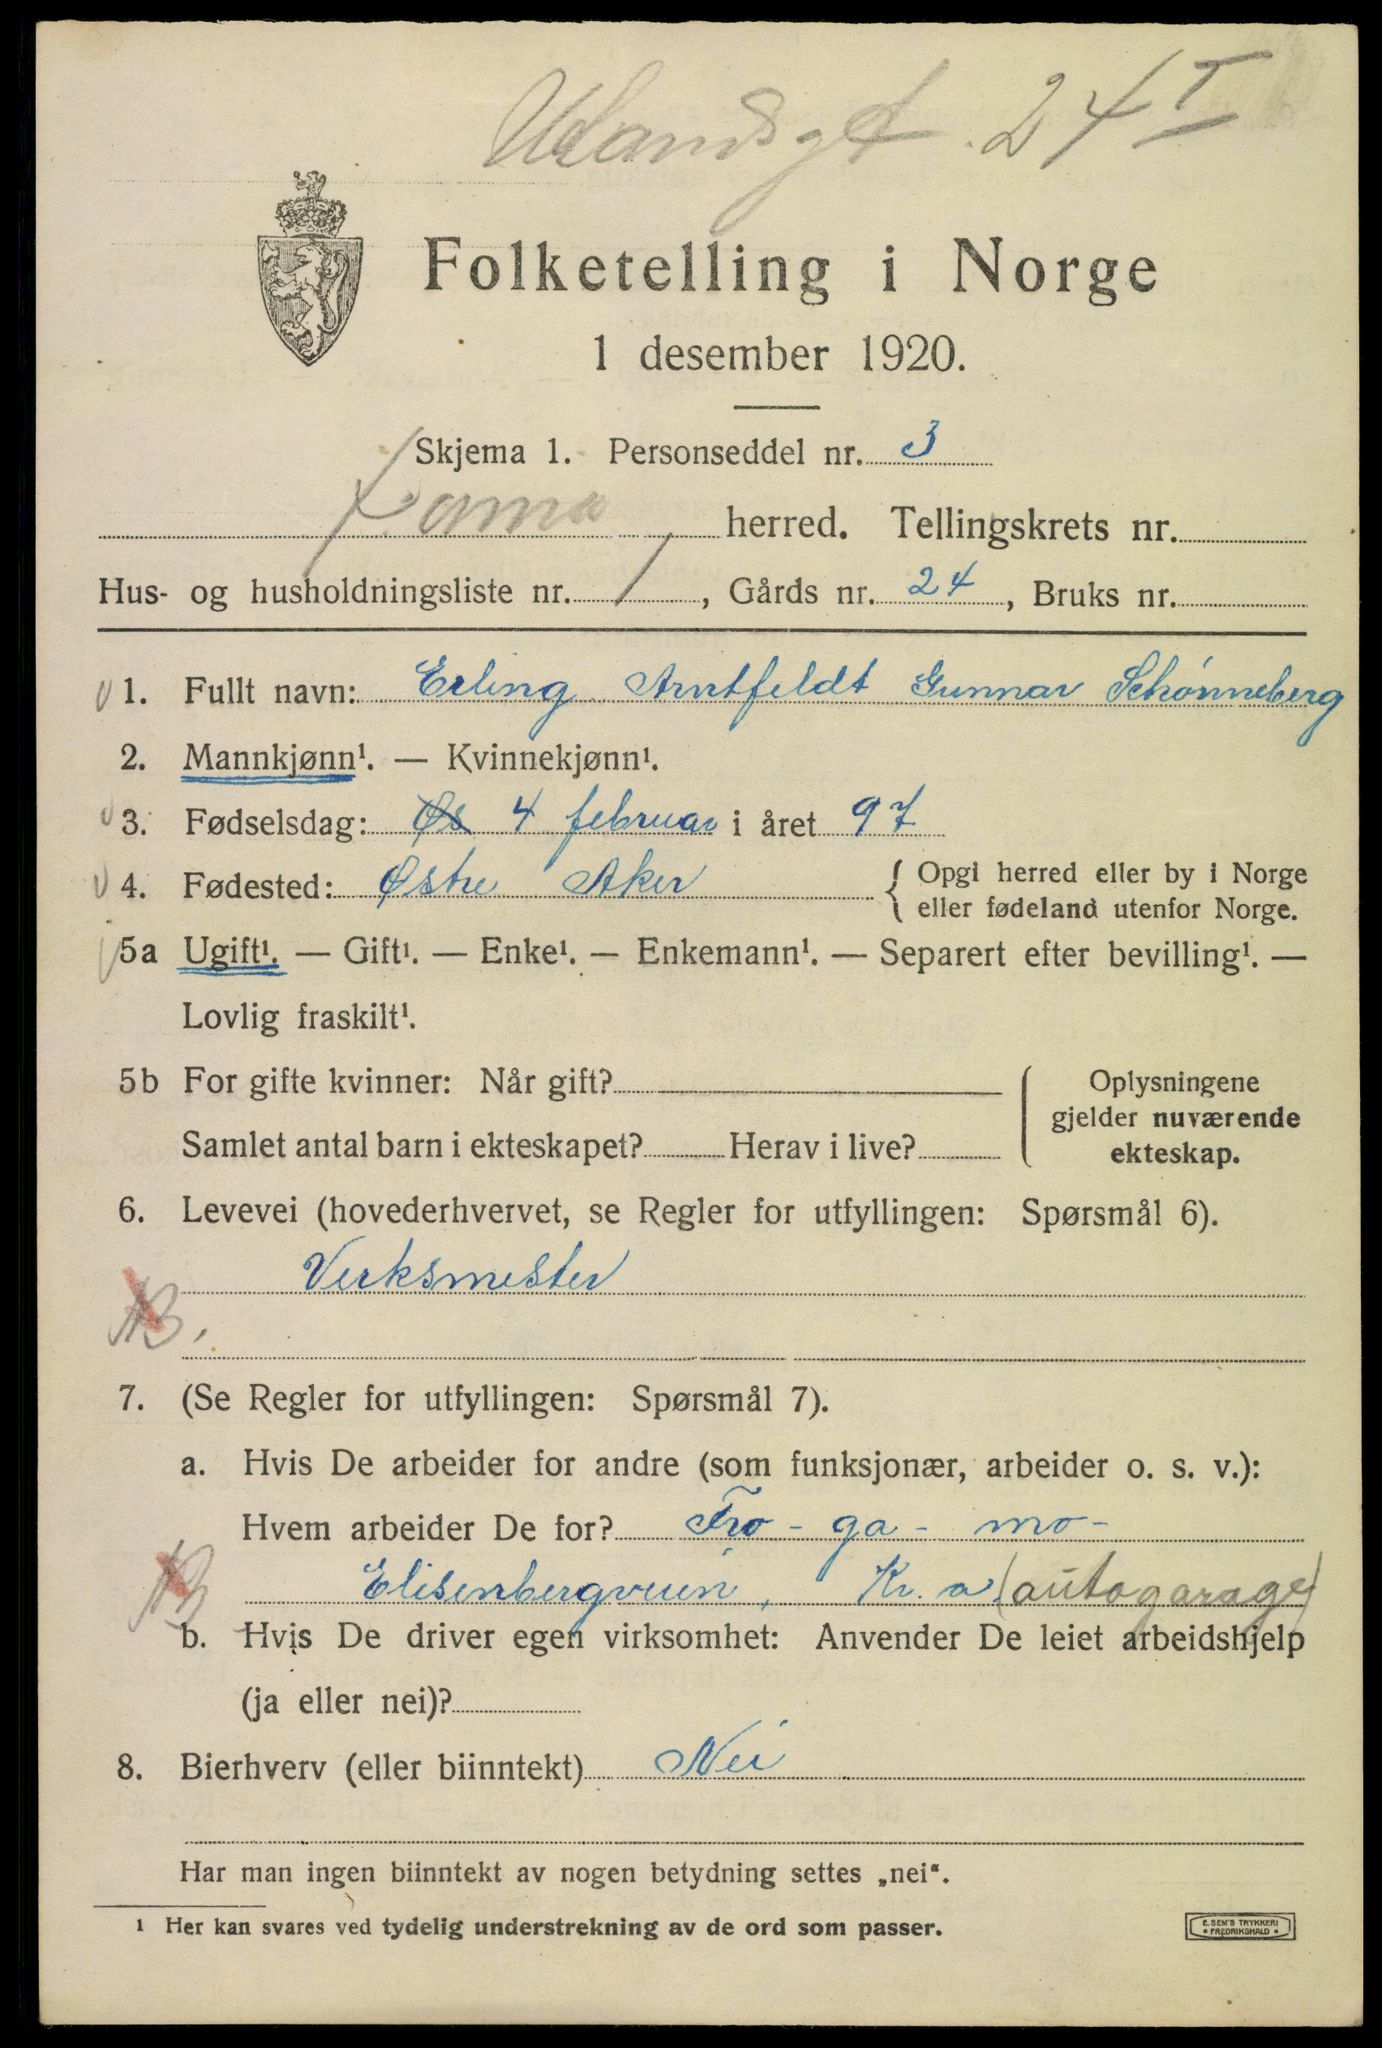 Uelandsgt. 24 I
Folketelling i Norge
1 desember 1920.
Skjema 1. Personseddel nr. 3
herred. Tellingskrets nr.
Hus- og husholdningsliste nr. 1, Gårds nr. 24, Bruks nr.
1. Fullt navn: Erling Arntfeldt Gunnar Schønneberg
2. Mannkjønn¹. — Kvinnekjønn¹.
3. Fødselsdag: Øs 4 februar i året 97
4. Fødested: Østre Aker { Opgi herred eller by i Norge
eller fødeland utenfor Norge.
5a Ugift¹. — Gift¹. — Enke¹. — Enkemann¹. — Separert efter bevilling¹. —
Lovlig fraskilt¹.
5b For gifte kvinner: Når gift?
Samlet antal barn i ekteskapet? Herav i live?
Oplysningene
gjelder nuværende
ekteskap.
6. Levevei (hovederhvervet, se Regler for utfyllingen: Spørsmål 6).
Verksmester
AB.
7. (Se Regler for utfyllingen: Spørsmål 7).
a. Hvis De arbeider for andre (som funksjonær, arbeider o. s. v.):
Hvem arbeider De for? Fro - ga - mo -
AB Elisenbergveien, Kr. a (autogarage)
b. Hvis De driver egen virksomhet: Anvender De leiet arbeidshjelp
(ja eller nei)?
8. Bierhverv (eller biinntekt) Nei
Har man ingen biinntekt av nogen betydning settes „nei“.
¹ Her kan svares ved tydelig understrekning av de ord som passer.
E. SEM'S TRYKKERI
• FREDRIKSHALD •